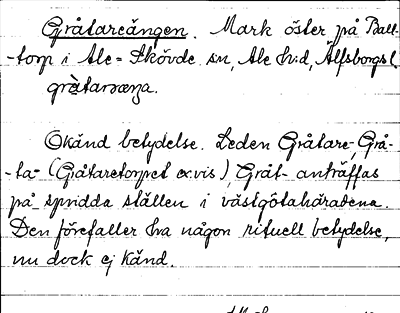 Gråtareängen. Mark öster på Ball-
-torp i Ale-Skövde sn, Ale hd, Älfsborgs l.
gràtaræŋa.
Okänd betydelse. Leden Gråtare-, Grå-
-ta- (Gråtaretorpet ex.vis), Gråt- anträffas
på spridda ställen i västgötahäraderna.
Den förefaller ha någon rituell betydelse,
nu dock ej känd.